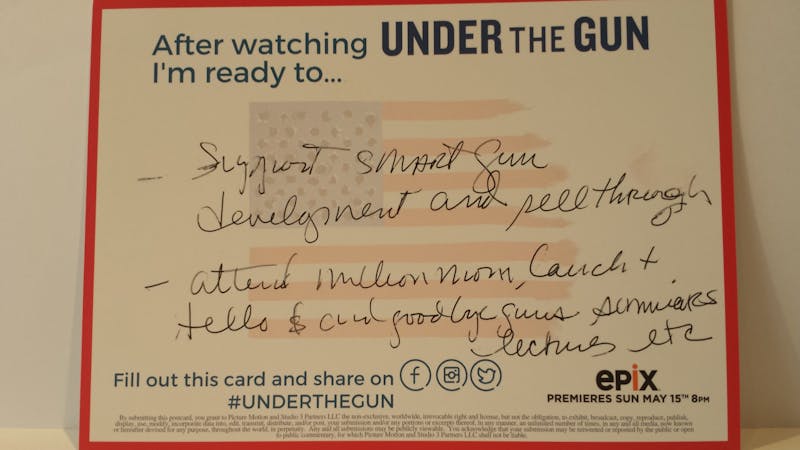 After watching UNDER THE GUN
I'm ready to...
- Support smart gun
development and sell through
- attend million mom, Cauch +
hello $ and goodbye guns seminars
lectures etc
Fill out this card and share on
#UNDERTHEGUN
epix
PREMIERES SUN MAY 15TH 8PM
By submitting this postcard, you grant to Picture Motion and Studio 3 Partners LLC the non-exclusive, worldwide, irrevocable right and license, but not the obligation, to exhibit, broadcast, copy, reproduce, publish,
display, use, modify, incorporate data into, edit, transmit, distribute, and/or post, your submission and/or any portions or excerpts thereof, in any manner, an unlimited number of times, in any and all media, now known
or hereafter devised for any purpose, throughout the world, in perpetuity. Any and all submissions may be publicly viewable. You acknowledge that your submission may be retweeted or reposted by the public or open
to public commentary, for which Picture Motion and Studio 3 Partners LLC shall not be liable.